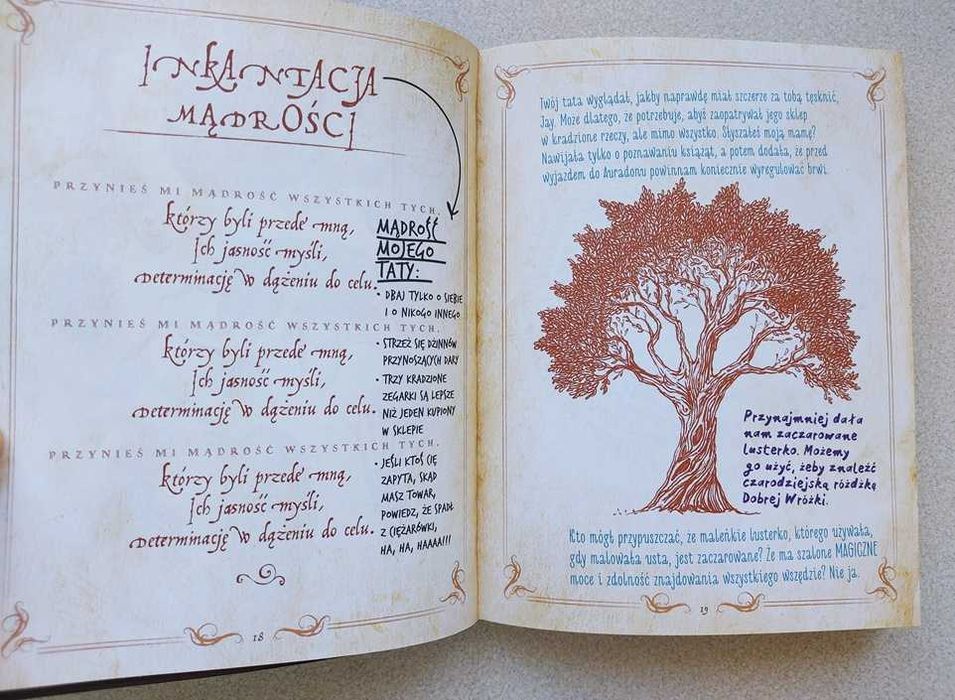 INKANTACJA
MĄDROŚCI
PRZYNIEŚ MI MĄDROŚĆ WSZYSTKICH TYCH,
którzy byli przede mną,
Ich jasność myśli,
Determinację w dążeniu do celu.
PRZYNIEŚ MI MĄDROŚĆ WSZYSTKICH TYCH,
którzy byli przede mną,
Ich jasność myśli,
Determinację w dążeniu do celu.
PRZYNIEŚ MI MĄDROŚĆ WSZYSTKICH TYCH,
którzy byli przede mną,
Ich jasność myśli,
Determinację w dążeniu do celu.
MĄDROŚĆ
MOJEGO
TATY:
• DBAJ TYLKO O SIEBIE
I O NIKOGO INNEGO
• STRZEŻ SIĘ DŻINNÓW
PRZYNOSZĄCYCH DARY
• TRZY KRADZIONE
ZEGARKI SĄ LEPSZE
NIŻ JEDEN KUPIONY
W SKLEPIE
• JEŚLI KTOŚ CIĘ
ZAPYTA, SKĄD
MASZ TOWAR,
POWIEDZ, ŻE SPADŁ
Z CIĘŻARÓWKI,
HA, HA, HAAAA!!!
18
Twój tata wyglądał, jakby naprawdę miał szczerze za tobą tęsknić,
Jay. Może dlatego, że potrzebuje, abyś zaopatrywał jego sklep
w kradzione rzeczy, ale mimo wszystko. Słyszałeś moją mamę?
Nawijała tylko o poznawaniu książąt, a potem dodała, że przed
wyjazdem do Auradonu powinnam koniecznie wyregulować brwi.
Przynajmniej dała
nam zaczarowane
lusterko. Możemy
go użyć, żeby znaleźć
czarodziejską różdżkę
Dobrej Wróżki.
Kto mógł przypuszczać, że maleńkie lusterko, którego używała,
gdy malowała usta, jest zaczarowane? Że ma szalone MAGICZNE
moce i zdolność znajdowania wszystkiego wszędzie? Nie ja.
19